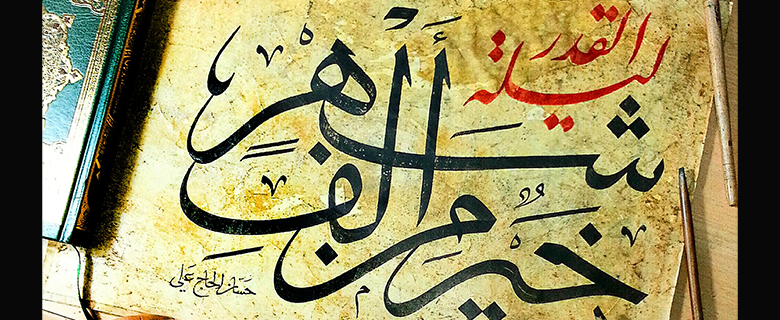 ليلة القدر
خيرٌ من ألفِ شهرٍ
حسان الحاج علي